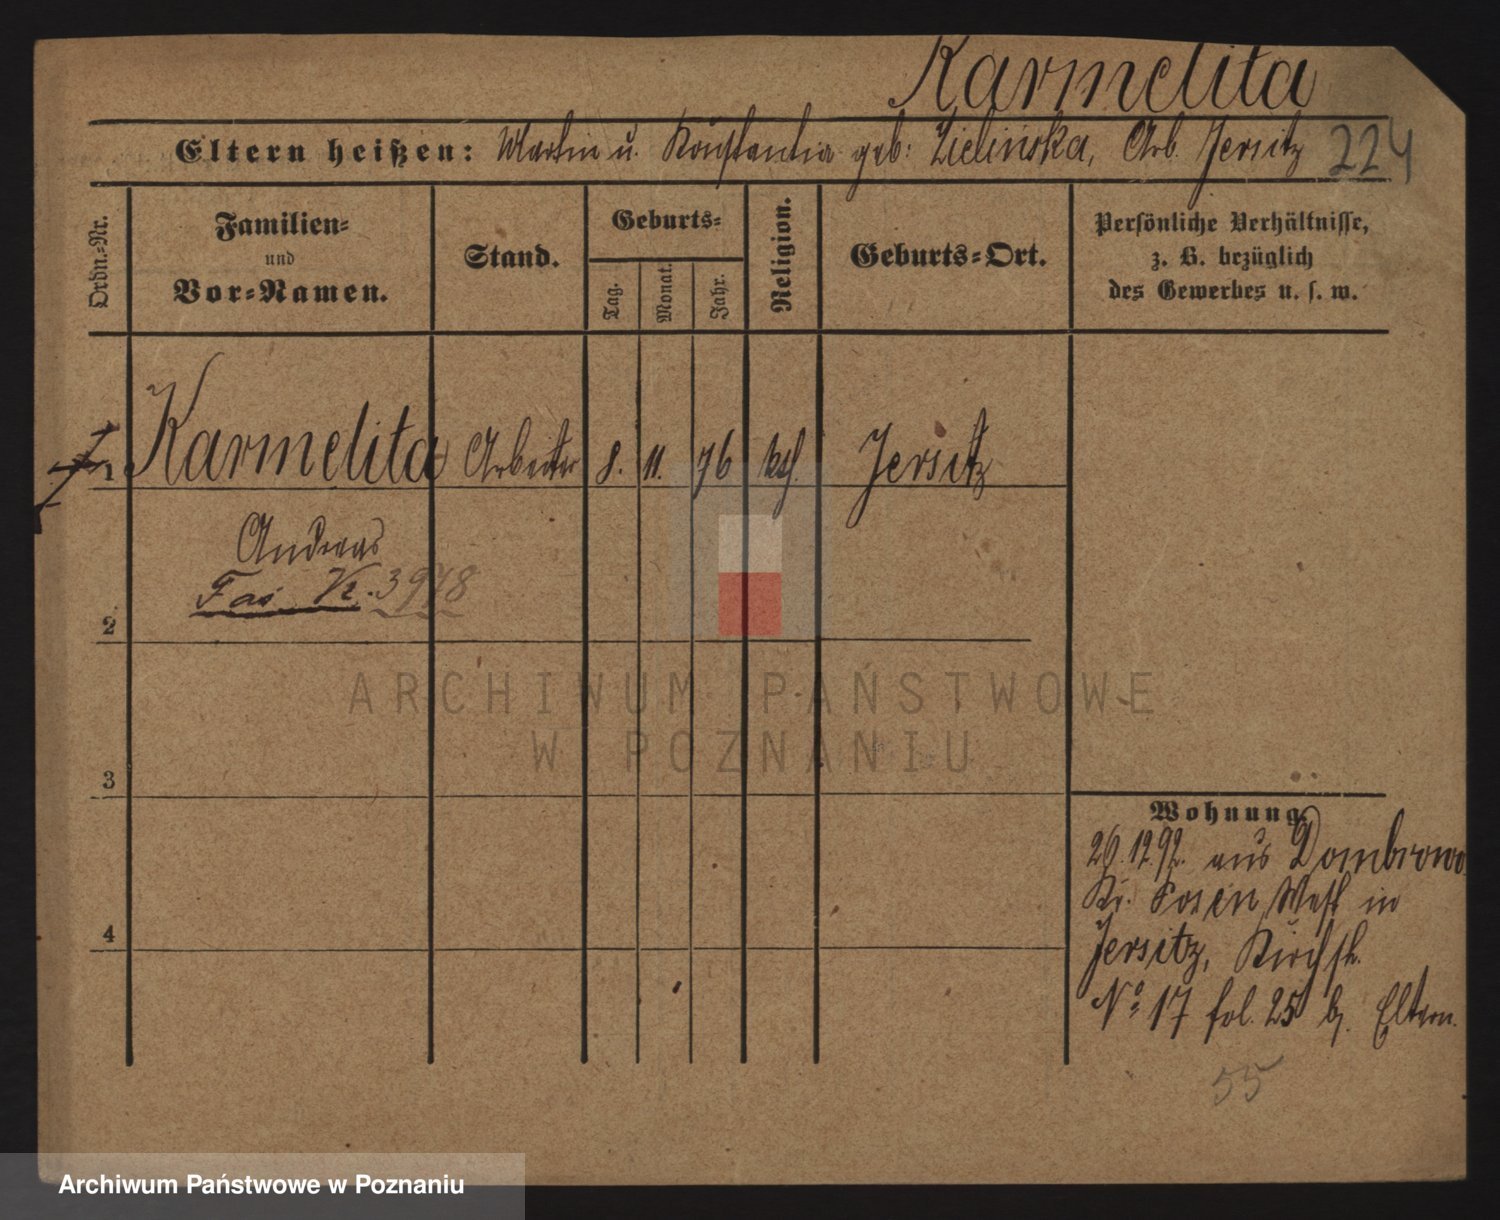 Karmelita
Eltern heißen: Martin u. Konstantia geb: Zielińska, Arb. Jersitz 224
Ordn.-Nr.
Familien-
und
Vor-Namen.
Stand.
Geburts-
Tag.
Monat.
Jahr.
Religion.
Geburts-Ort.
Persönliche Verhältnisse,
z. B. bezüglich
des Gewerbes u. s. w.
1 Karmelita Arbeiter 8. 11. 76 kth. Jersitz
Andreas
3978
2
3
4
Wohnung.
29.12.92. aus Dombrowo
Kr. Posen West in
Jersitz, Kirchstr.
No 17 fol. 25 b. Eltern.
55
ARCHIWUM PAŃSTWOWE
W POZNANIU
Archiwum Państwowe w Poznaniu